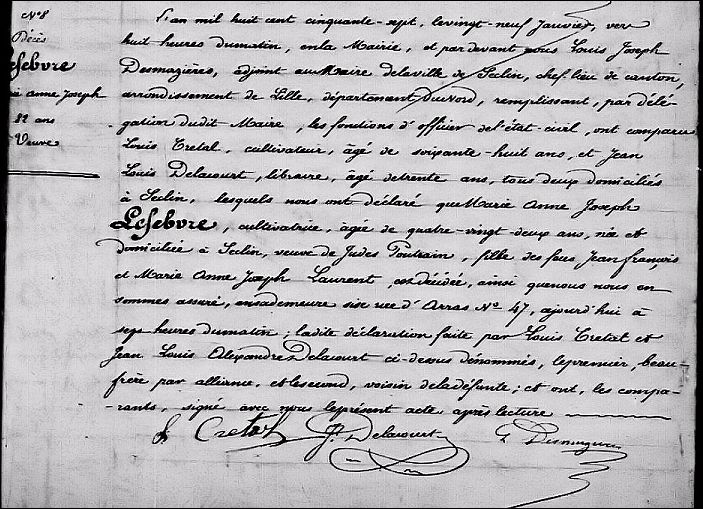 N°8
Décès
Lefebvre
Anne Joseph
82 ans
Veuve
L'an mil huit cent cinquante-sept, le vingt-neuf Janvier, vers
huit heures du matin, en la Mairie, et par devant nous Louis Joseph
Desmazières, adjoint au Maire de la ville de Seclin, chef-lieu de canton,
arrondissement de Lille, département du Nord, remplissant, par délé-
gation dudit Maire, les fonctions d'officier de l'état-civil, ont comparu
Louis Cretal, cultivateur, âgé de soixante-huit ans, et Jean
Louis Delacourt, libraire, âgé de trente ans, tous deux domiciliés
à Seclin, lesquels nous ont déclaré que Marie Anne Joseph
Lefebvre, cultivatrice, âgée de quatre-vingt-deux ans, née et
domiciliée à Seclin, veuve de Judes Poutrain, fille des feus, Jean françois
et Marie Anne Joseph Laurent, est décédée, ainsi que nous nous en
sommes assuré, en sa demeure sise rue d'Arras N° 47, aujourd'hui à
sept heures du matin; ladite déclaration faite par Louis Cretal et
Jean Louis Alexandre Delacourt ci-dessus dénommés, le premier, beau-
frère par alliance, et le second, voisin de la défunte; et ont, les compa-
-rants, signé avec nous le présent acte après lecture
L Cretal Jn Ls Delacourt L Desmazières